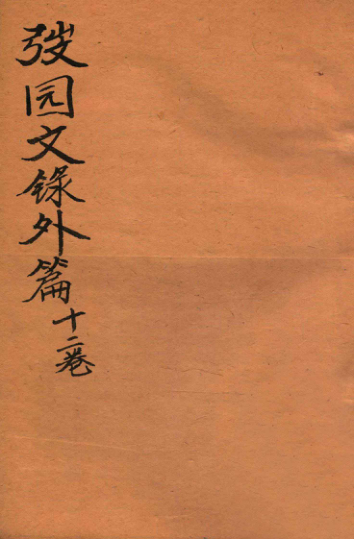 弢园文錄外篇十二卷